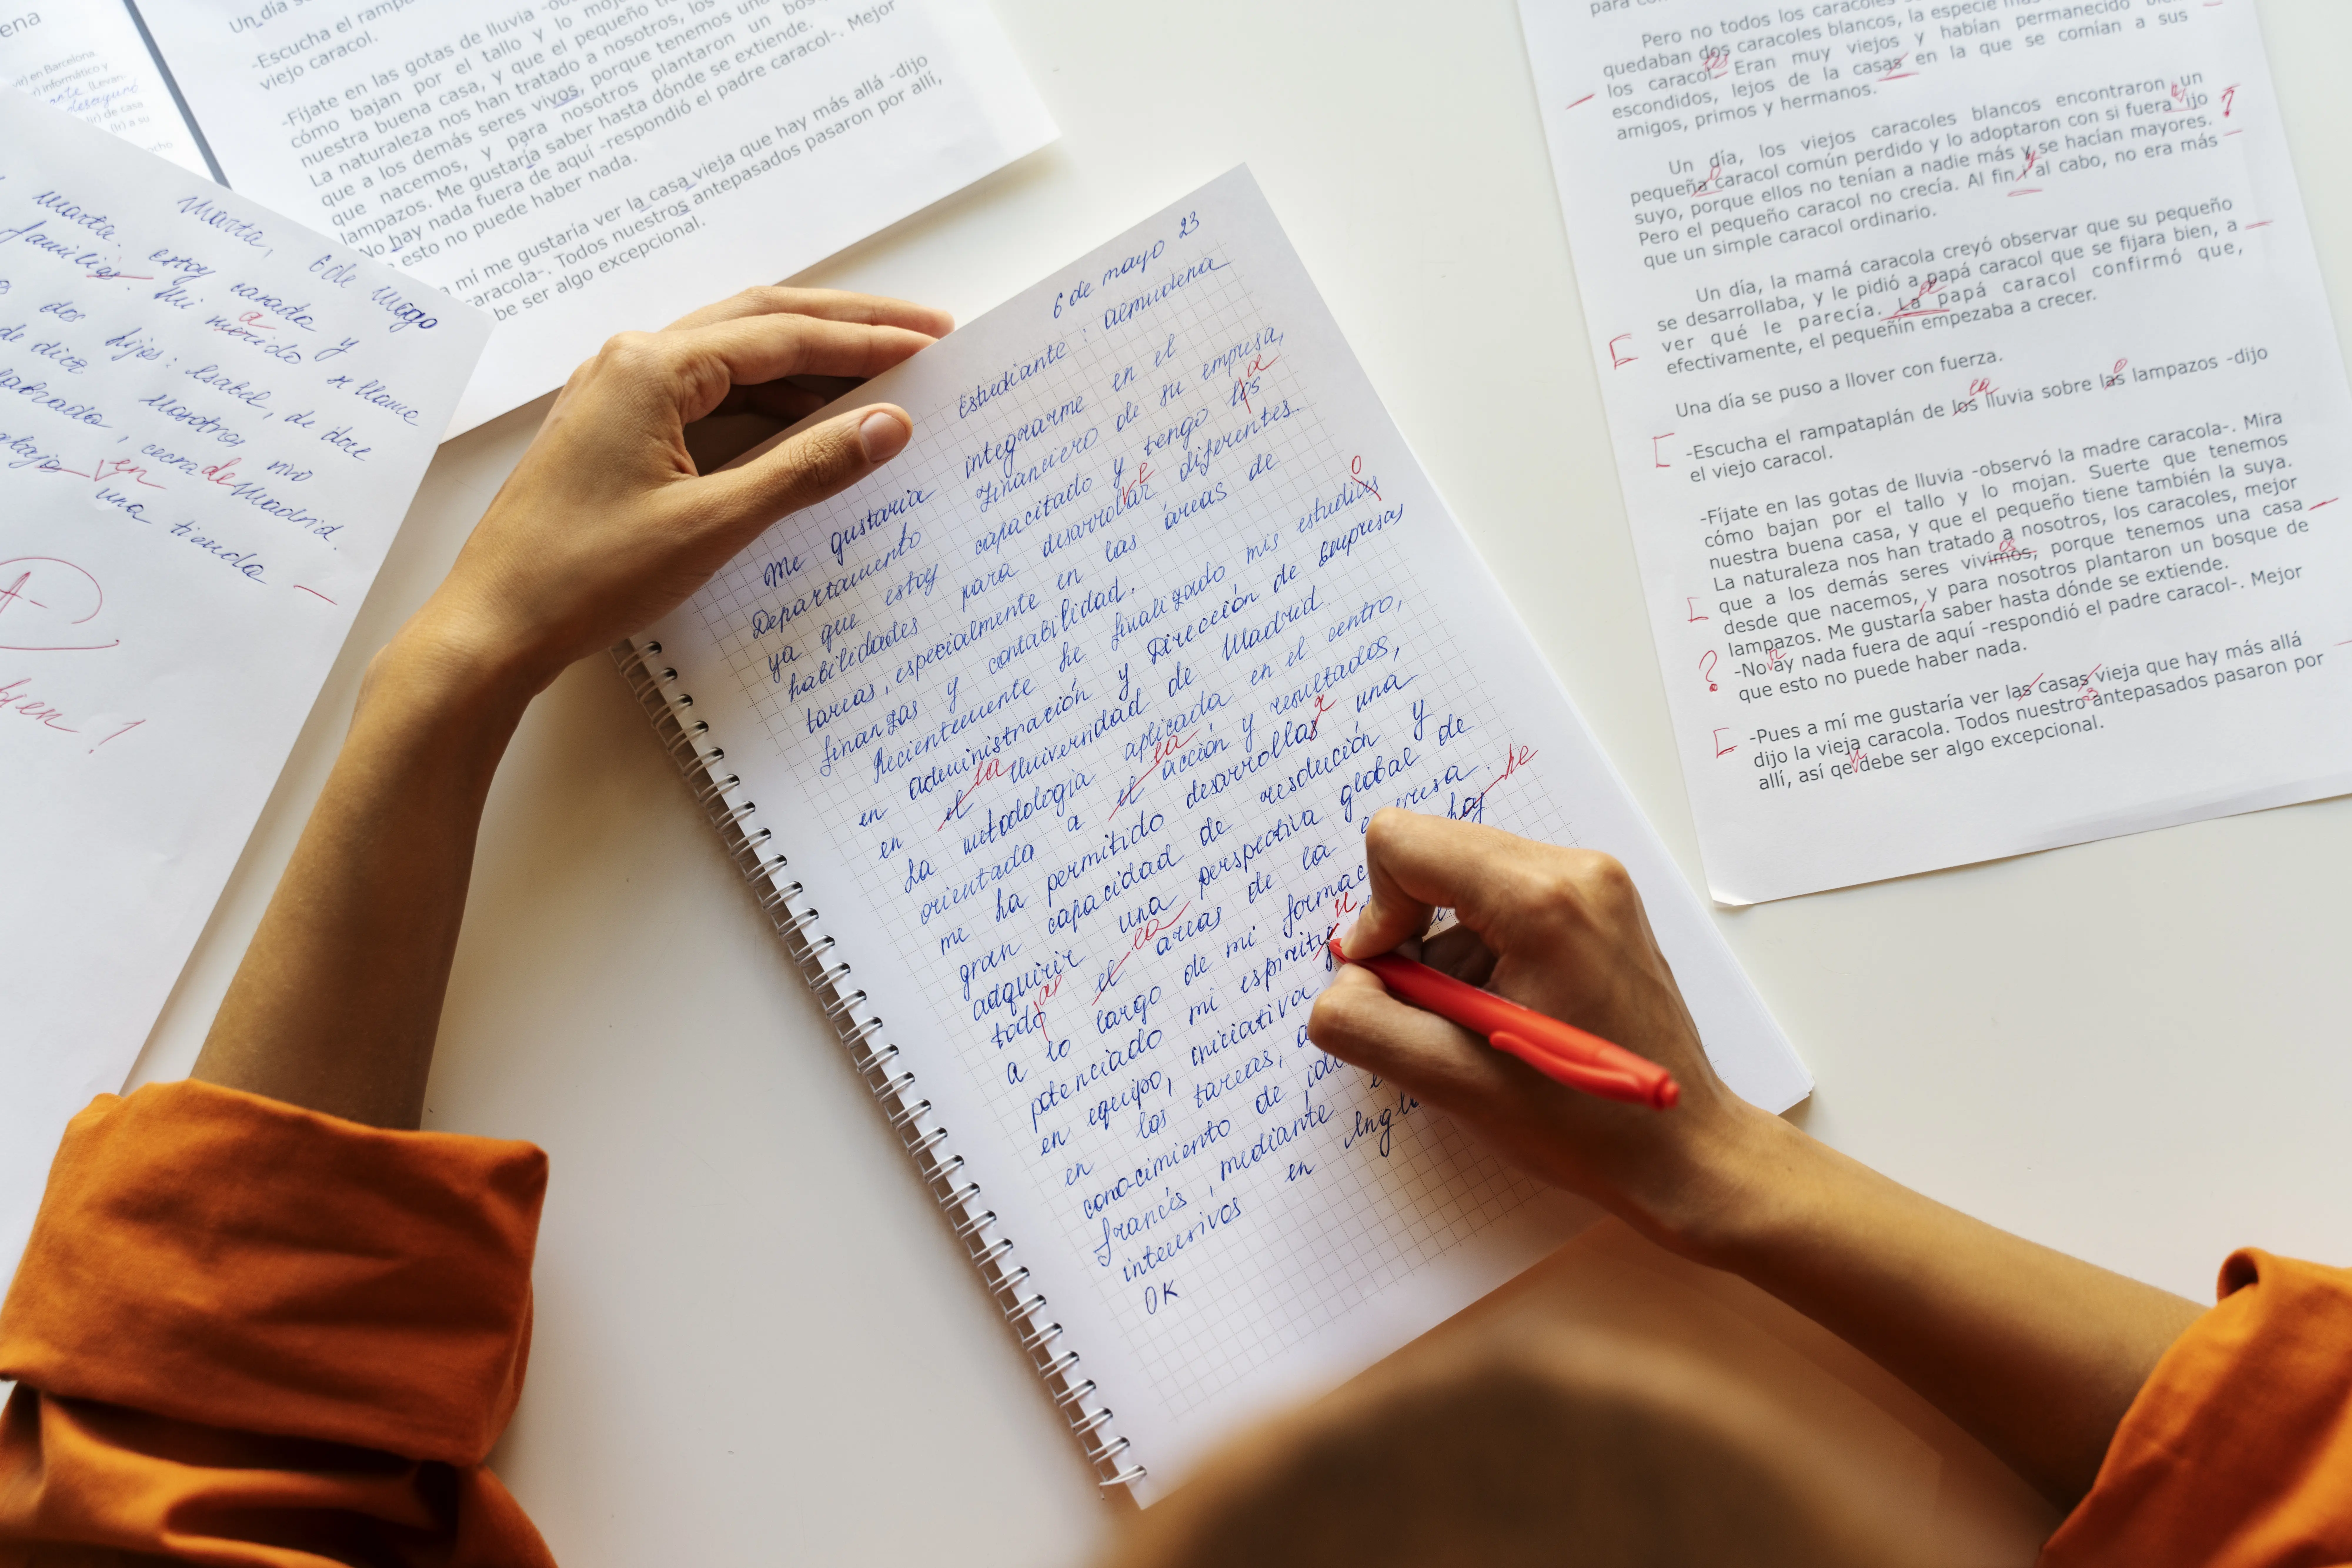 ena
en Barcelona.
informático y
desayuné
de casa
a su
Un día s
-Escucha el rampa
viejo caracol.
-Fíjate en las gotas de lluvia
cómo bajan por el tallo y lo moj
nuestra buena casa, y que el pequeño ti
La naturaleza nos han tratado a nosotros, los
que a los demás seres vivos, porque tenemos una
que nacemos, y para nosotros plantaron un bos
lampazos. Me gustaría saber hasta dónde se extiende.
No hay nada fuera de aquí -respondió el padre caracol-. Mejor
esto no puede haber nada.
a mí me gustaría ver la casa vieja que hay más allá -dijo
caracola-. Todos nuestros antepasados pasaron por allí,
be ser algo excepcional.
Marta, 6 de mayo
Marta. estoy casada y
familia. Mi marido se llama
a
dos hijos: Isabel, de doce
de diez Nosotros vivo
, cerca de Madrid.
en una tienda
A-
bien!
6 de mayo 23
Estudiante: almudena
Me gustaria integrarme en el
Departamento Financiero de su empresa,
ya que estoy capacitado y tengo los
a
habilidades para desarrollar diferentes
tareas, especialmente en las áreas de
finanzas y contabilidad.
Recientemente he finalizado mis estudias
o
en administración y Dirección de Empresas
en el Universidad de Madrid.
la
La metodologia aplicada en el centro,
orientada a el acción y resultados,
la
me ha permitido desarrollas una
r
gran capacidad de resolución y
adquirir una perspectiva global de
todo el areas de la empresa.
as la
a lo largo de mi formac hay
he
potenciado mi espirity
u
en equipo, iniciativa
en las tareas, a
conocimiento de idi
francés, mediante
intensivos en Ingl
OK
Pero no todos los caracoles
quedaban dos caracoles blancos, la especie
los caracol. Eran muy viejos y habían permanecido
escondidos, lejos de la casas en la que se comían a sus
amigos, primos y hermanos.
Un día, los viejos caracoles blancos encontraron un
pequeña caracol común perdido y lo adoptaron con si fuera ijo
o
?
suyo, porque ellos no tenían a nadie más y se hacían mayores.
Pero el pequeño caracol no crecía. Al fin y al cabo, no era más
que un simple caracol ordinario.
Un día, la mamá caracola creyó observar que su pequeño
se desarrollaba, y le pidió a papá caracol que se fijara bien, a
ver qué le parecía. La papá caracol confirmó que,
efectivamente, el pequeñín empezaba a crecer.
Una día se puso a llover con fuerza.
-Escucha el rampataplán de los lluvia sobre las lampazos -dijo
la o
el viejo caracol.
-Fíjate en las gotas de lluvia -observó la madre caracola-. Mira
cómo bajan por el tallo y lo mojan. Suerte que tenemos
nuestra buena casa, y que el pequeño tiene también la suya.
La naturaleza nos han tratado a nosotros, los caracoles, mejor
que a los demás seres vivimos, porque tenemos una casa
desde que nacemos, y para nosotros plantaron un bosque de
lampazos. Me gustaría saber hasta dónde se extiende.
?
-No ay nada fuera de aquí -respondió el padre caracol-. Mejor
que esto no puede haber nada.
-Pues a mí me gustaría ver las casas vieja que hay más allá
dijo la vieja caracola. Todos nuestro antepasados pasaron por
allí, así qe debe ser algo excepcional.